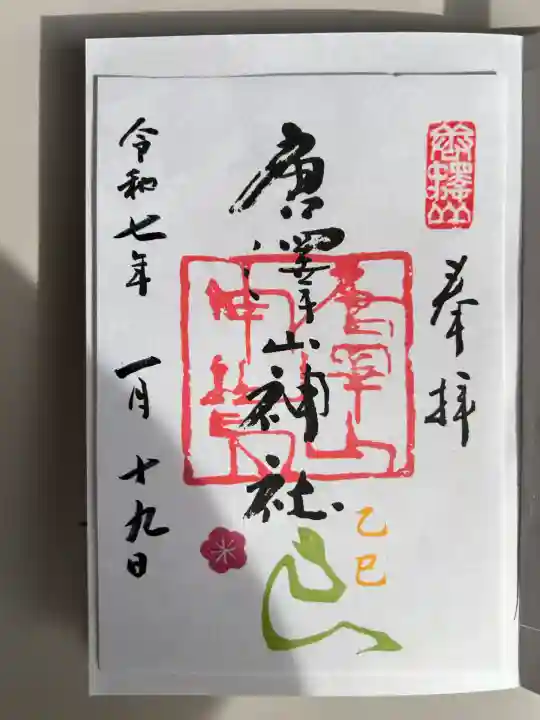 奉拝
唐澤山
唐澤山神社
唐澤山
神社
乙巳
令和七年 一月十九日